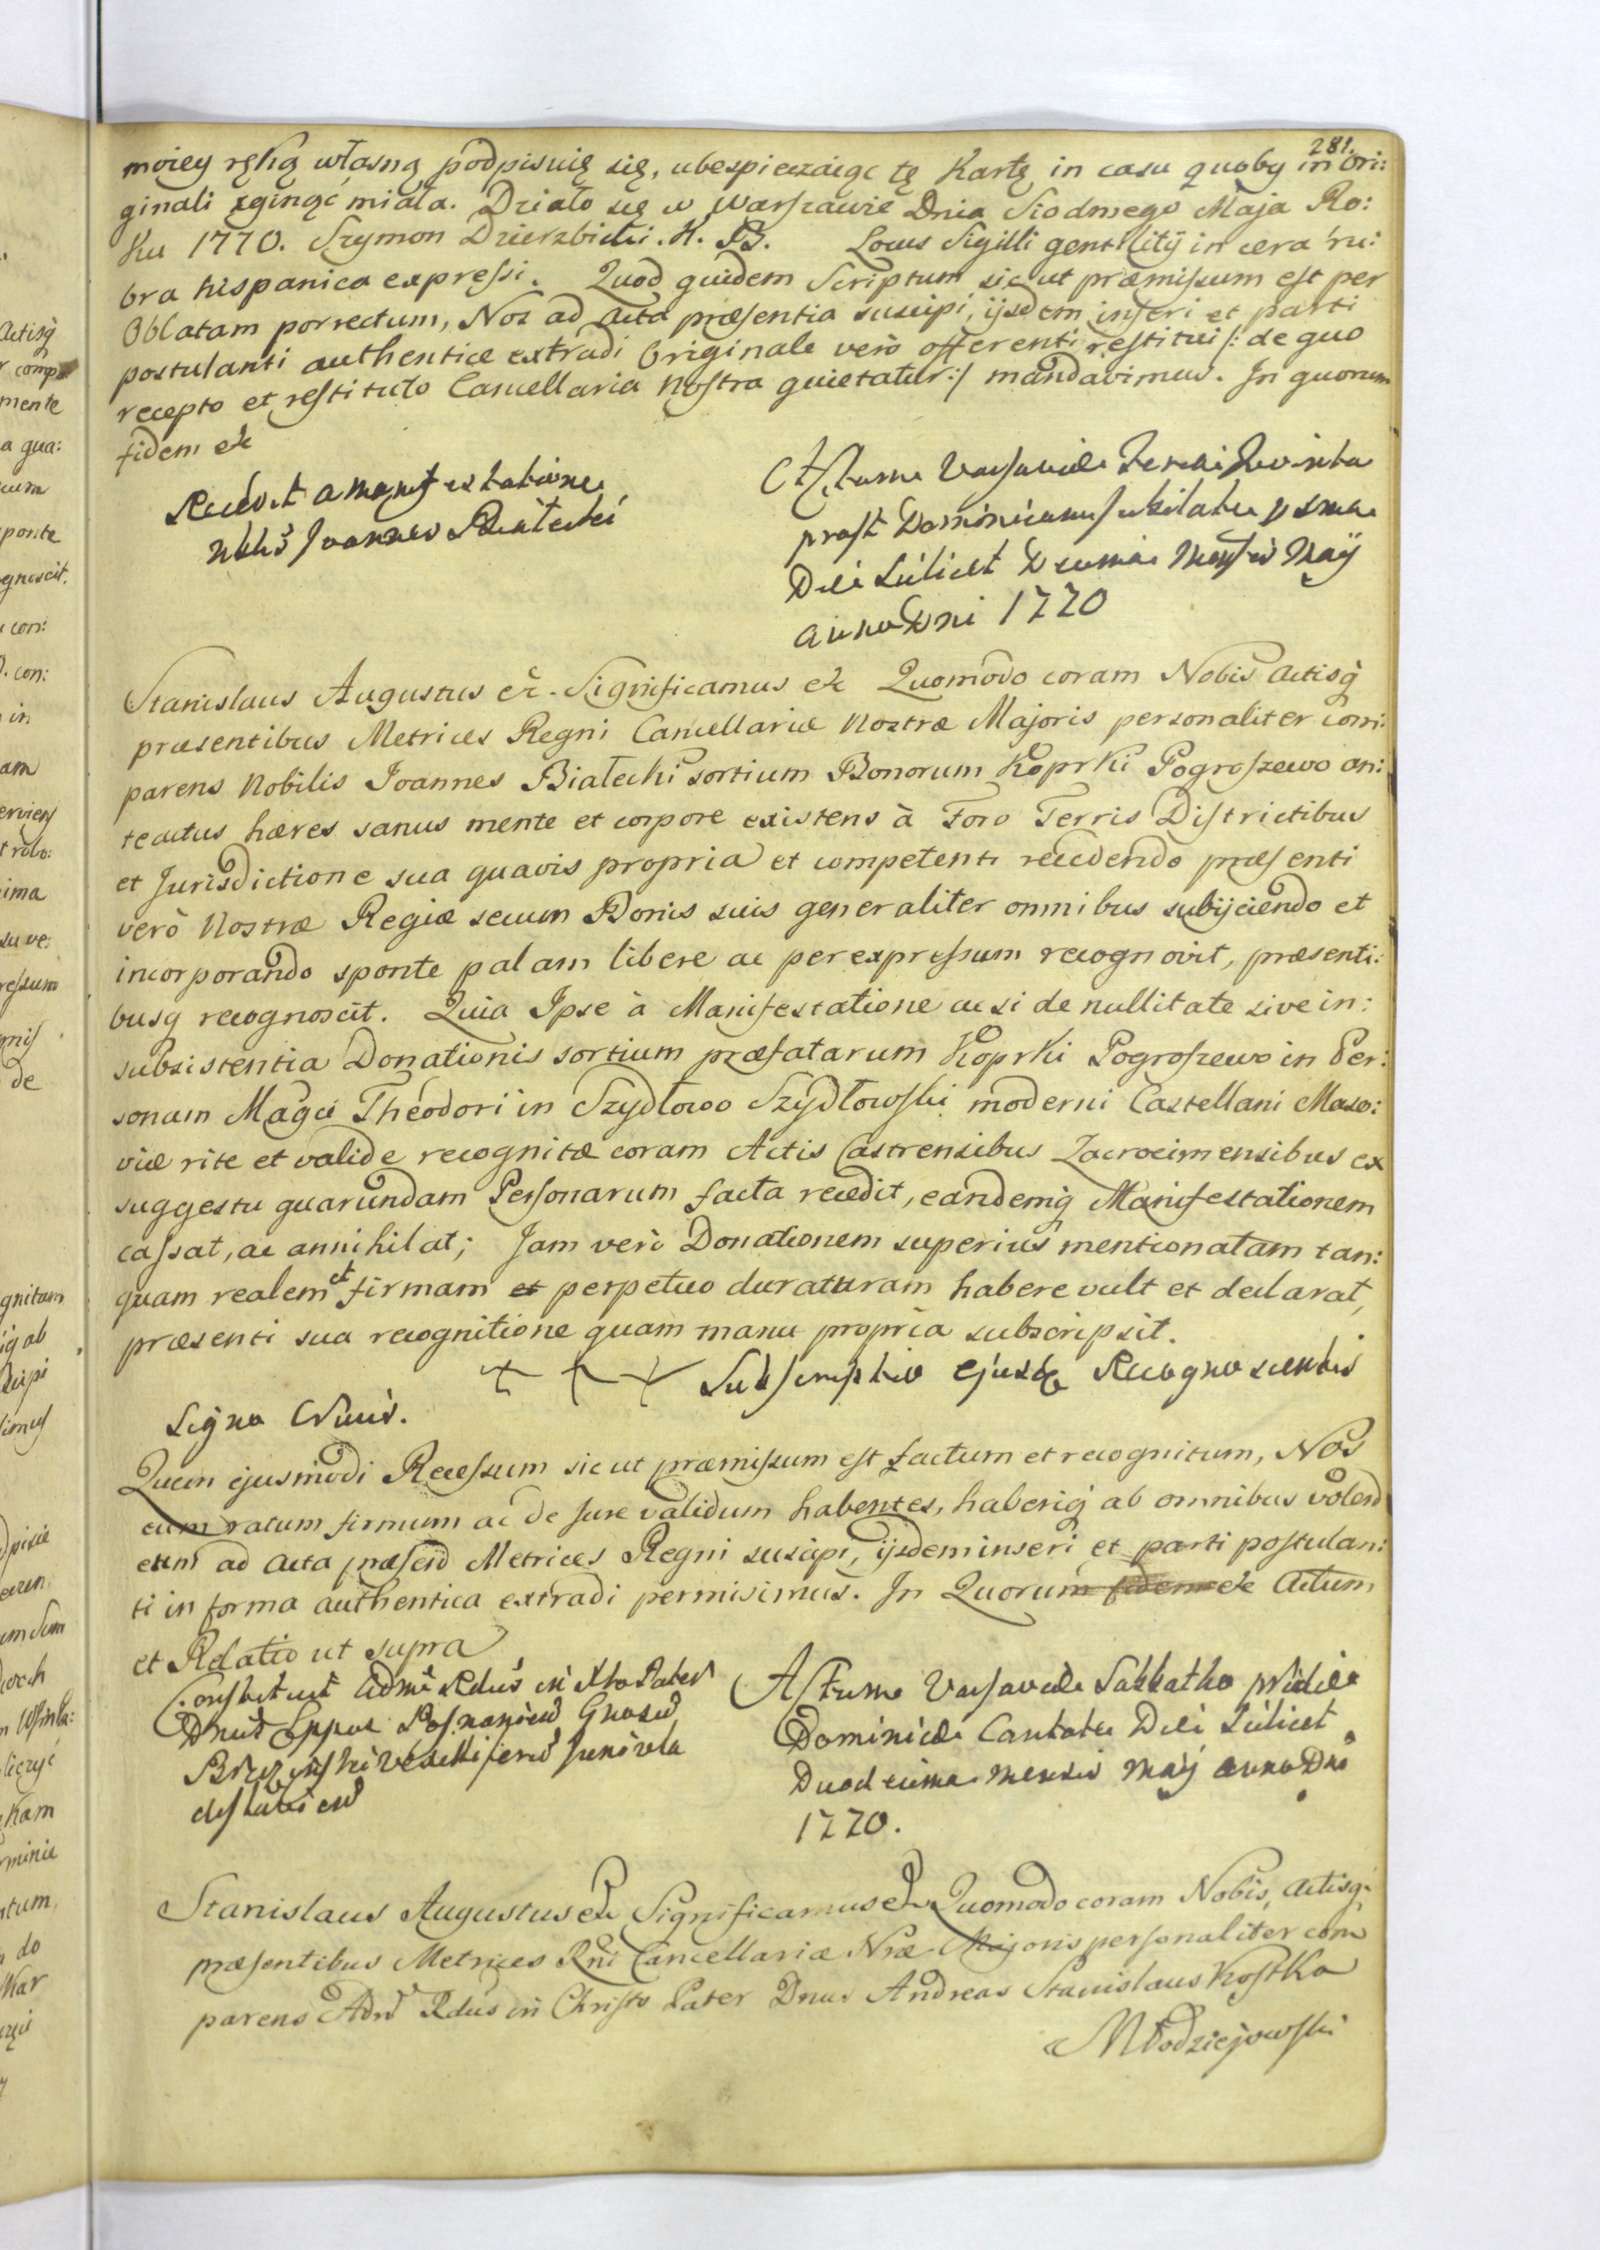 281.
moiey ręką własną podpisuię się, ubespieczaiąc tę Kartę in casu quoby in Ori:
ginali zginąć miała. Działo się w Warszawie Dnia Siodmego Maja Ro:
Ku 1770. Szymon Dzierzbicki. K. B. Locus Sigilli gentilitij in cera ru:
bra hispanica expressi. Quod quidem Scriptum sicut præmissum est per
Oblatam porrectum, Nos ad Acta præsentia suscipi, ijsdem inseri et parti
postulanti authentice extradi Originale verò offerenti restitui /: de quo
recepto et restituto Cancellaria Nostra quietatur :/ mandavimus. In quorum
fidem etc
Recedit a manifestatione
Nblis Joannes Białecki
Actum Varsaviæ Feria Quinta
post Dominicam Jubilate p sma
Die scilicet Decima Mensis Maij
anno Dni 1770
Stanislaus Augustus etc. Significamus etc Quomodo coram Nobis Actisq
præsentibus Metrices Regni Cancellariæ Nostræ Majoris personaliter com:
parens Nobilis Joannes Białecki sortium Bonorum Koprki Pogroszewo an:
teactus hæres sanus mente et corpore existens à Foro Terris Districtibus
et Jurisdictione sua quavis propria et competenti recedendo præsenti
verò Nostræ Regiæ secum Bonis suis generaliter omnibus subijciendo et
incorporando sponte palam libere ac per expressum recognovit, præsenti:
busq recognoscit. Quia Ipse à Manifestatione acsi de nullitate sive in:
subsistentia Donationis sortium præfatarum Koprki Pogroszewo in Per:
sonam Magci Theodori in Szydłowo Szydłowski moderni Castellani Maso:
viæ rite et valide recognitæ coram Actis Castrensibus Zacrocimensibus ex
suggestu quarundam Personarum facta recedit, eandemq Manifestationem
cassat, ac annihilat; Jam verò Donationem superius mentionatam tan:
quam realem et firmam et perpetuo duraturam habere vult et declarat,
præsenti sua recognitione quam manu propria subscripsit.
+ + + Subscriptio ejusdem Recognoscentis
Signo Crucis.
Quem ejusmodi Recessum sicut præmissum est factum et recognitum, Nos
eum ratum firmum ac de Jure validum habentes, haberiq ab omnibus volend
eum ad Acta præsend Metrices Regni suscipi, ijsdem inseri et parti postulan:
ti in forma authentica extradi permisimus. In Quorum fidem etc Actum
et Relatio ut supra
Constituit Admd Rdus in Xto Pater
Dnus Eppus Posnanien Gnosum
Brzezinski Vexilliferum Junivla
dislavien
Actum Varsaviæ Sabbatho pridie
Dominicæ Cantate Die scilicet
Duodecima mensis Maij anno Dni
1770.
Stanislaus Augustus etc Significamus etc Quomodo coram Nobis, Actisq
præsentibus Metrices Rni Cancellariæ Nræ Majoris personaliter com
parens Admd Rdus in Christo Pater Dnus Andreas Stanislaus Kostka
Młodziejowski